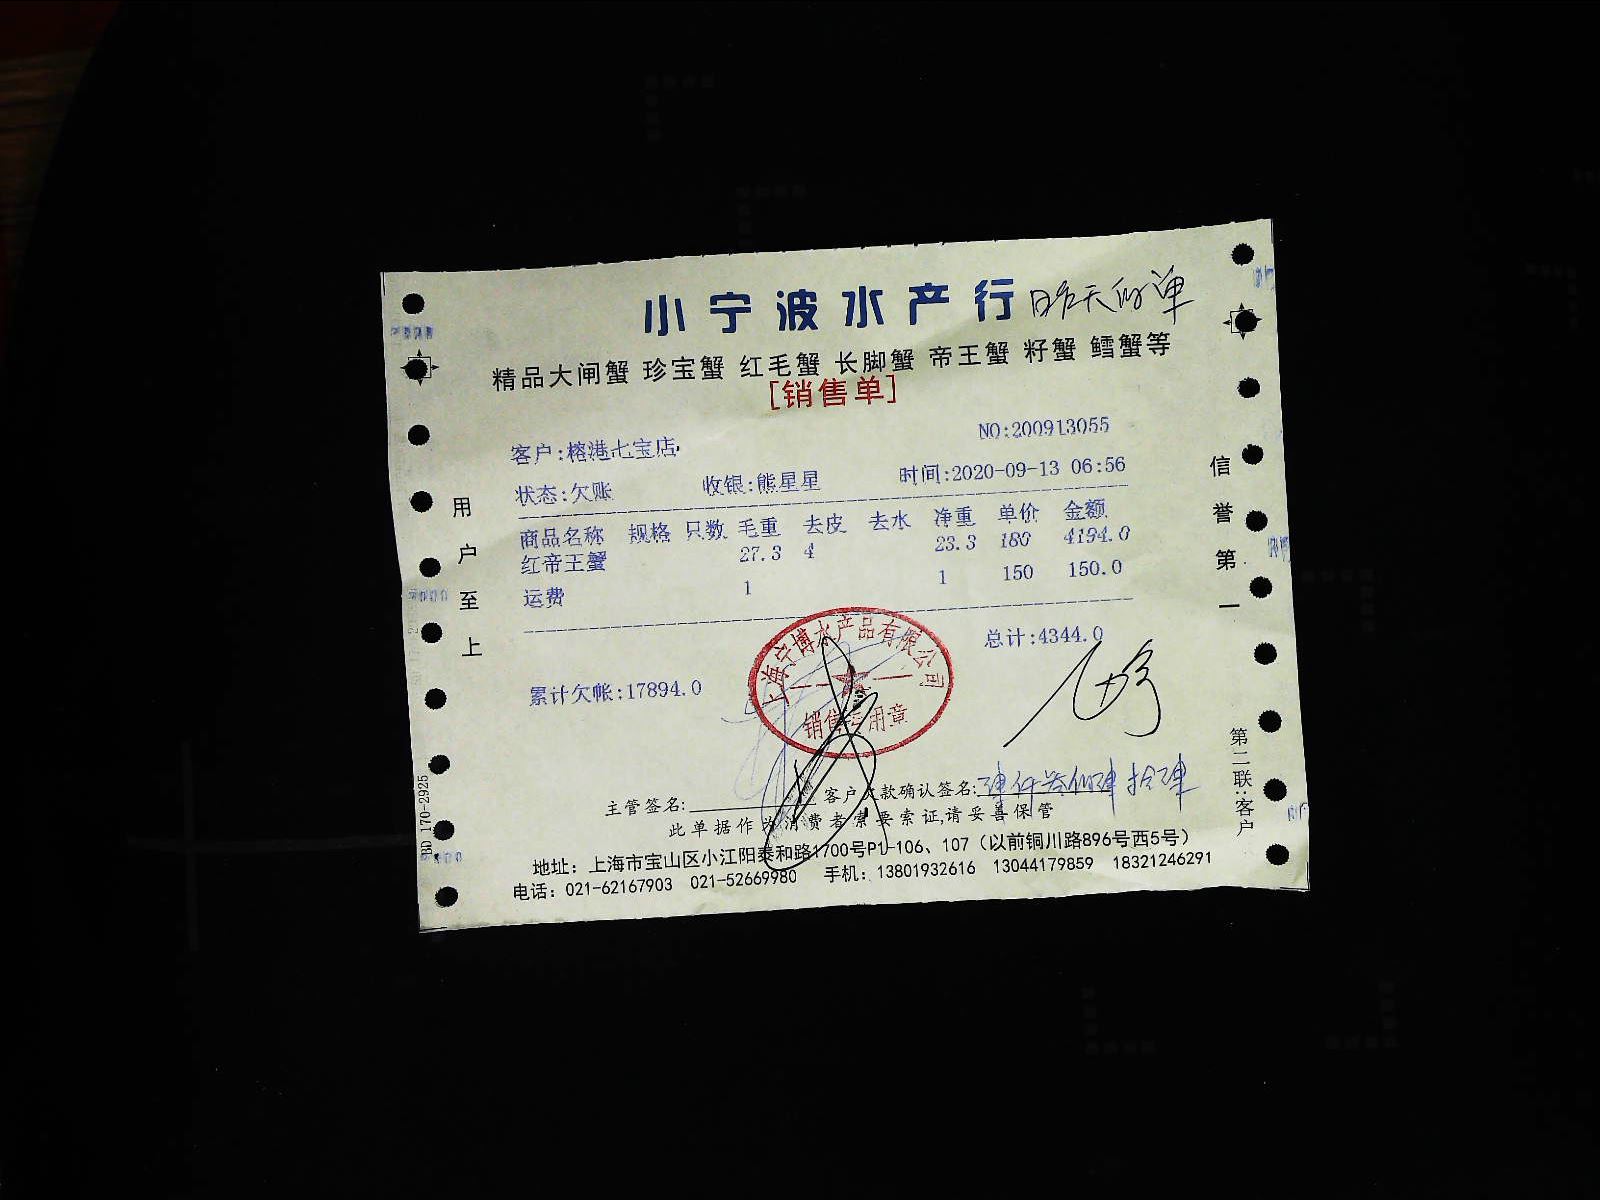 小宁波水产行 昨天的单
精品大闸蟹 珍宝蟹 红毛蟹 长脚蟹 帝王蟹 籽蟹 鳕蟹等
[销售单]
NO:200913055
客户:榕港七宝店
状态:欠账 收银:熊星星 时间:2020-09-13 06:56
商品名称 规格 只数 毛重 去皮 去水 净重 单价 金额
红帝王蟹 27.3 4 23.3 180 4194.0
运费 1 1 150 150.0
总计:4344.0
累计欠帐:17894.0
上海宁博水产品有限公司
销售专用章
主管签名: 客户欠款确认签名:肆仟叁佰肆拾肆
此单据作为消费者索要索证,请妥善保管
地址：上海市宝山区小江阳泰和路1700号P1-106、107（以前铜川路896号西5号）
电话：021-62167903 021-52669980 手机：13801932616 13044179859 18321246291
用户至上
信誉第一
第二联:客户
BD 170-2925